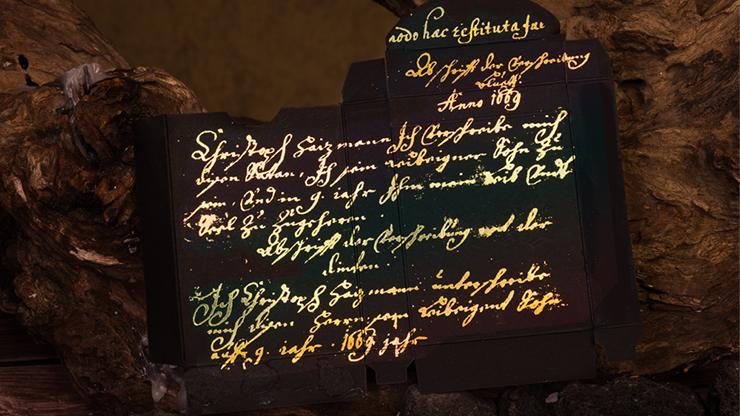 modo hac restituta
Abschrifft der Verschreibung
Bluett:
Anno 1669
Christoph Haizmann Ich Verschreibe mich
disen Satan, Ich sein leibeigner Sohn zu
sein, Und in 9. iahr Ihm mein leib Undt
Seel zu zugeheren.
Abschrifft der Verschreibung mit der
dinden.
Ich Christoph Haizmann unterschreibe
mich disen Herrn sein leibeigent Sohn
auff 9. iahr. 1669 jahr